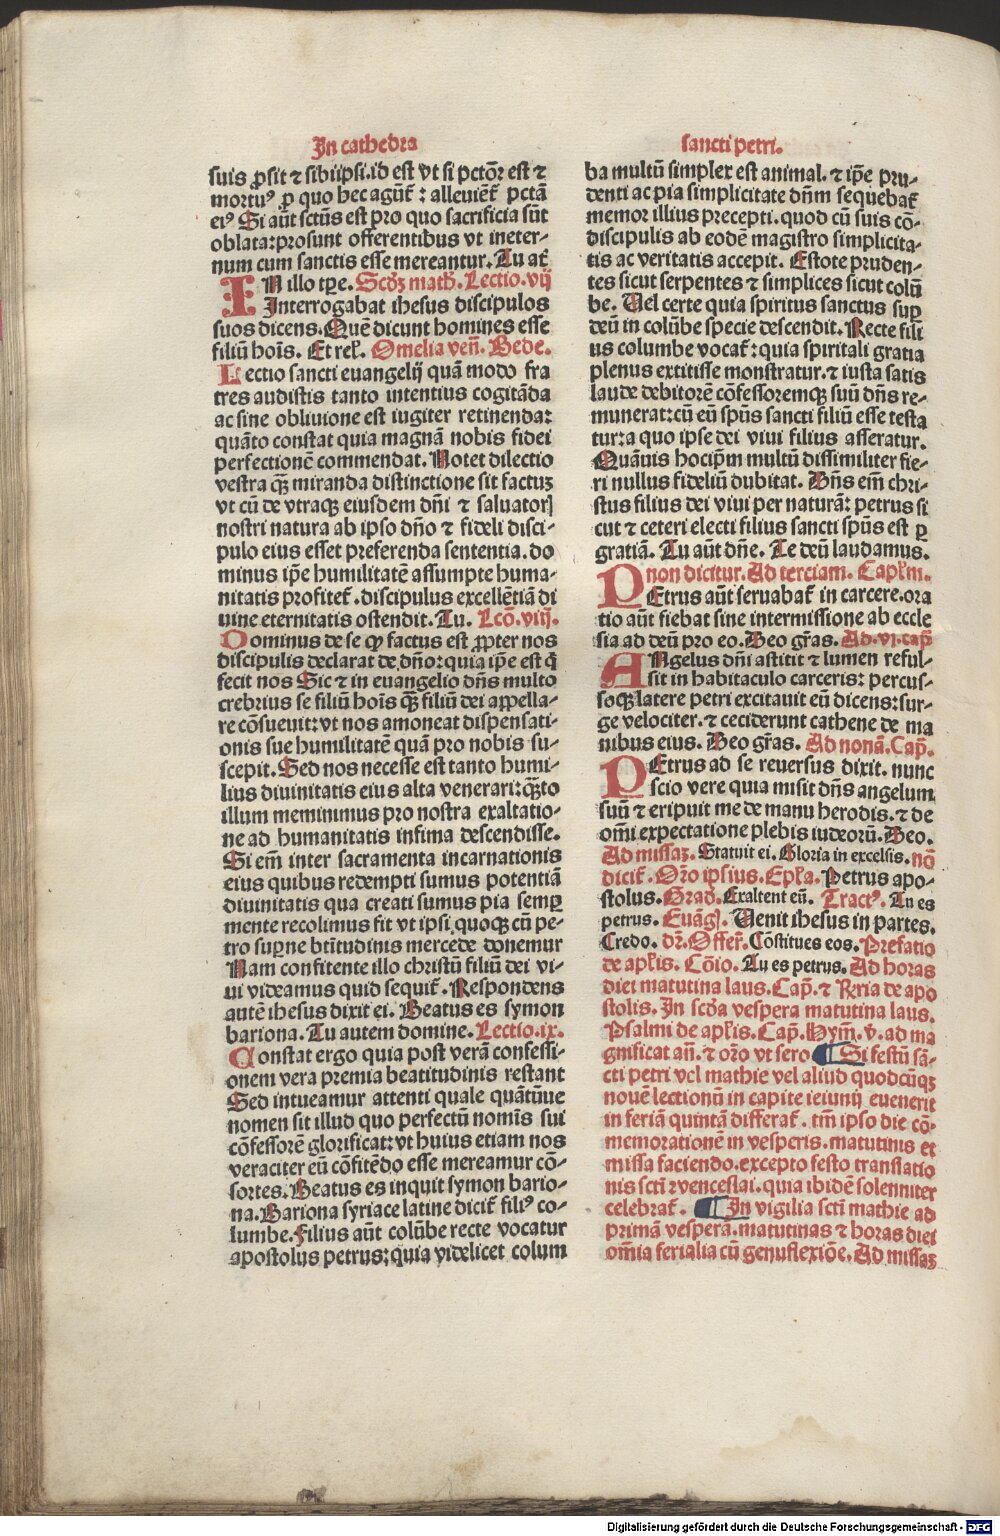 In cathedra
suis ꝓsit ⁊ sibiipsi.id est vt si pctōꝛ est ⁊
mortuꝰ ꝓ quo hec agūt᷑ : alleuiet᷑ pctā
eiꝰ Si aūt sctūs est pro quo sacrificia sūt
oblata:prosunt offerentibus vt ineter-
num cum sanctis esse mereantur. Tu at᷑
IN illo tꝑe. Scdꝫ math. Lectio.vij
Interrogabat ihesus discipulos
suos dicens. Quē dicunt homines esse
filiū hoīs. Et rel. Omelia ven̄. Bede.
Lectio sancti euangelij quā modo fra
tres audistis tanto intentius cogitāda
ac sine obliuione est iugiter retinenda:
quāto constat quia magnā nobis fidei
perfectionē commendat. Notet dilectio
vestra qꝫ miranda distinctione sit factuꝫ
vt cū de vtraqꝫ eiusdem dn̄i ⁊ saluatorꝭ
nostri natura ab ipso dn̄o ⁊ fideli disci-
pulo eius esset preferenda sententia. do
minus ip̄e humilitatē assumpte huma-
nitatis profitet᷑ .discipulus excellētiā di
uine eternitatis ostendit. Tu. Lcō.viij.
Dominus de se qꝫ factus est ꝓpter nos
discipulis declarat de dn̄o:quia ip̄e est q̄
fecit nos Sic ⁊ in euangelio dn̄s multo
crebrius se filiū hoīs qꝫ filiū dei appella-
re cōsueuit: vt nos amoneat dispensati-
onis sue humilitatē quā pro nobis su-
scepit. Sed nos necesse est tanto humi-
lius diuinitatis eius alta venerari:qꝫto
illum meminimus pro nostra exaltatio-
ne ad humanitatis infima descendisse.
Si em̄ inter sacramenta incarnationis
eius quibus redempti sumus potentiā
diuinitatis qua creati sumus pia semꝑ
mente recolimus fit vt ipsi quoqꝫ cū pe-
tro suꝑne btītudinis mercede donemur
Nam confitente illo christū filiū dei vi-
ui videamus quid sequit᷑. Respondens
autē ihesus dixit ei. Beatus es symon
bariona. Tu autem domine. Lectio.ix.
Constat ergo quia post verā confessi-
onem vera premia beatitudinis restant
Sed intueamur attenti quale quātūue
nomen sit illud quo perfectū nomīs sui
cōfessorē glorificat: vt huius etiam nos
veraciter eū cōfitēdo esse mereamur cō-
sortes. Beatus es inquit symon bario-
na. Bariona syriace latine dicit᷑ filiꝰ co-
lumbe. Filius aūt colūbe recte vocatur
apostolus petrus: quia videlicet colum
sancti petri.
ba multū simplex est animal. ⁊ ip̄e pru-
denti ac pia simplicitate dn̄m sequebat᷑
memor illius precepti. quod cū suis cō-
discipulis ab eodē magistro simplicita-
tis ac veritatis accepit. Estote pruden-
tes sicut serpentes ⁊ simplices sicut colū
be. Uel certe quia spiritus sanctus suꝑ
deū in colūbe specie descendit. Recte fili
us columbe vocat᷑ : quia spiritali gratia
plenus extitisse monstratur. ⁊ iusta satis
laude debitorē cōfessoremqꝫ suū dn̄s re-
munerat: cū eū spūs sancti filiū esse testa
tur: a quo ipse dei viui filius asseratur.
Quāuis hocip̄m multū dissimiliter fie-
ri nullus fideliū dubitat. Dn̄s em̄ chri-
stus filius dei viui per naturā: petrus si
cut ⁊ ceteri electi filius sancti spūs est ꝑ
gratiā. Tu aūt dn̄e. Te deū laudamus.
non dicitur. Ad terciam. Capl'm.
PEtrus aūt seruabat᷑ in carcere. ora
tio aūt fiebat sine intermissione ab eccle
sia ad deū pro eo. Deo gr̄as. Ad.vj.cap̄
ANgelus dn̄i astitit ⁊ lumen reful-
sit in habitaculo carceris: percus-
soqꝫ latere petri excitauit eū dicens: sur-
ge velociter. ⁊ ceciderunt cathene de ma
nibus eius. Deo gr̄as. Ad nonā. Cap̄.
PEtrus ad se reuersus dixit. nunc
scio vere quia misit dn̄s angelum
suū ⁊ eripuit me de manu herodis. ⁊ de
om̄i expectatione plebis iudeorū. Deo.
Ad missaꝫ. Statuit ei. Gloria in excelsis. nō
dicit᷑. Or̄o ipsius. Epl'a. Petrus apo-
stolus. Grad. Exaltent eū. Tractꝰ. Tu es
petrus. Euāgꝭ. Uenit ihesus in partes.
Credo. dr̄. Offer̄. Cōstitues eos. Prefatio
de apl'is. Cōio. Tu es petrus. Ad horas
diei matutina laus. Cap̄. ⁊ Rr̄ia de apo
stolis. In scd̄a vespera matutina laus.
Psalmi de apl'is. Cap̄. Hym̄. v̄. ad ma
gnificat an̄. ⁊ or̄o vt sero Si festū sā-
cti petri vel mathie vel aliud quodcūqꝫ
nouē lectionū in capite ieiunij euenerit
in feriā quintā differat᷑. tm̄ ipso die cō-
memorationē in vesperis. matutinis et
missa faciendo. excepto festo translatio
nis sctī ꝛvenceslai. quia ibidē solenniter
celebrat᷑. In vigilia sctī mathie ad
primā vesperā. matutinas ⁊ horas diei
om̄ia ferialia cū genuflexiōe. Ad missaꝫ
Digitalisierung gefördert durch die Deutsche Forschungsgemeinschaft - DFG